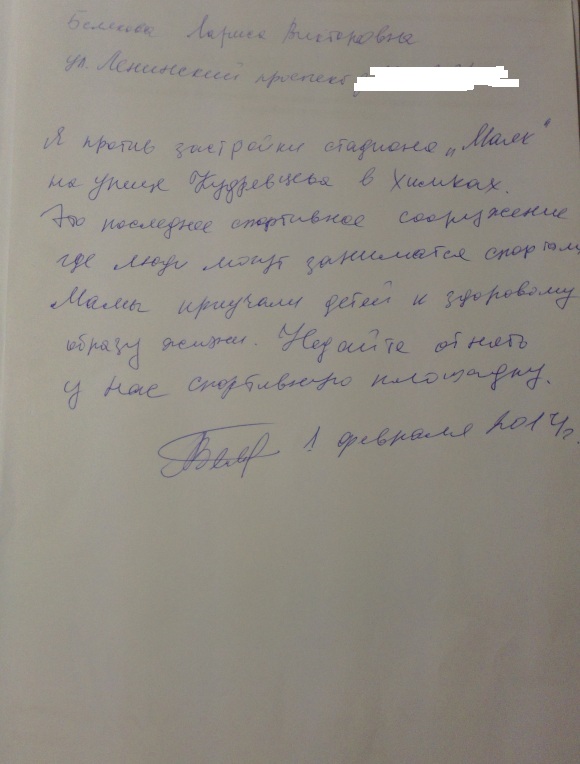 Лариса Викторовна
ул. Ленинский проспект
Я против застройки стадиона „Маяк"
на улице Кудрявцева в Химках.
Это последнее спортивное сооружение
где люди могут заниматся спортом,
Мамы приучали детей к здоровому
образу жизни. Недайте отнять
у нас спортивную площадку.
1 февраля 2014г.